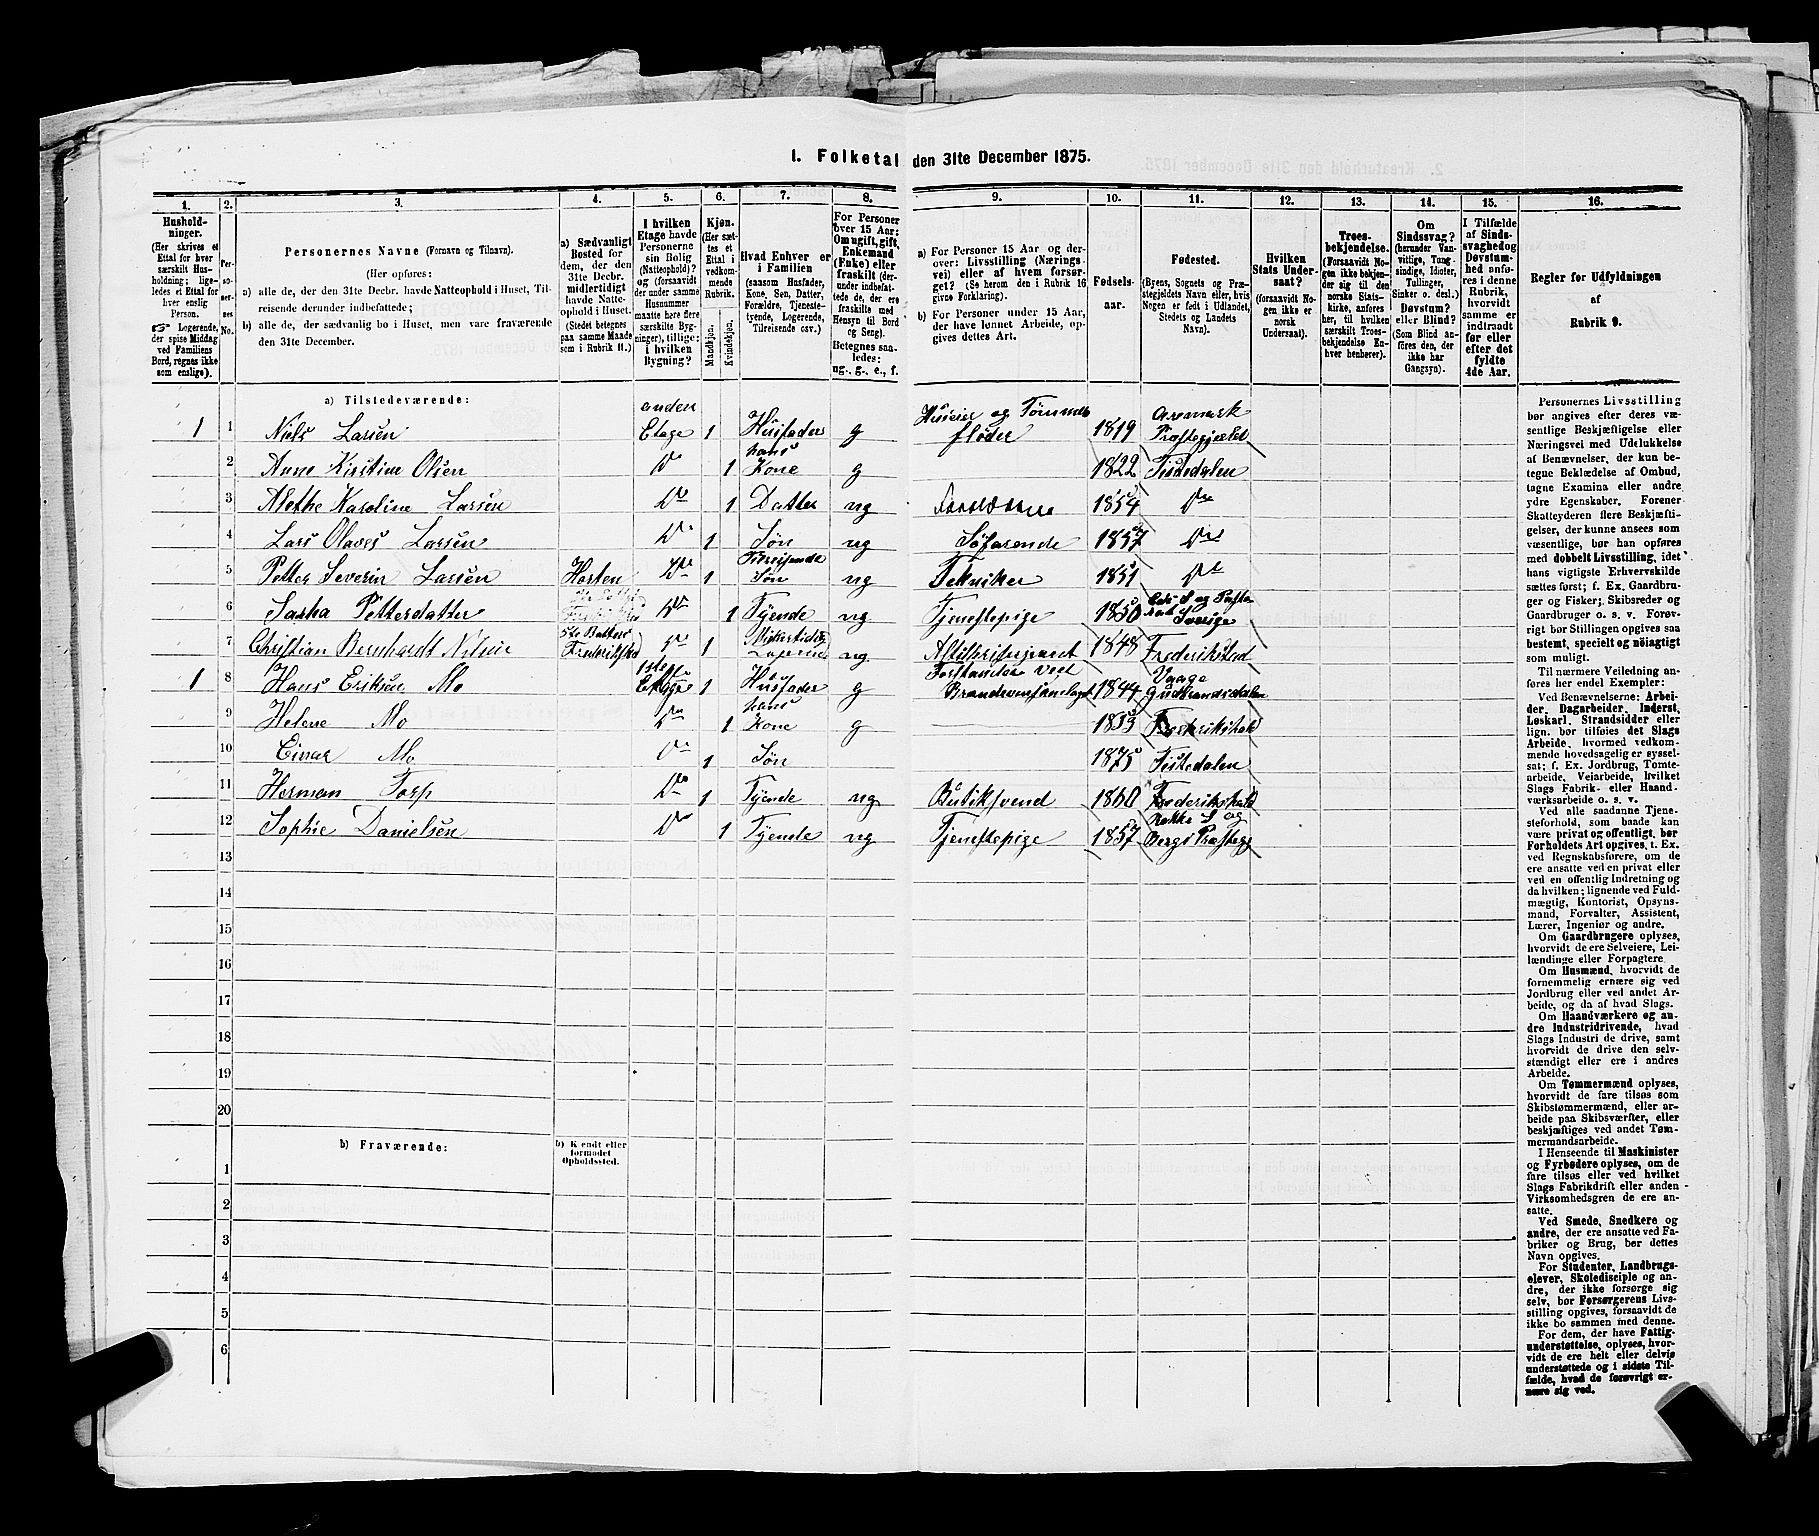 I. Folketal den 31te December 1875.
1. 2. 3. 4. 5. 6. 7. 8. 9. 10. 11. 12. 13. 14. 15. 16.
Husholdninger.
(Her skrives et
Ettal for hver
særskilt Husholdning;
ligeledes et Ettal for
hver enslig
Person.
☞ Logerende,
der spise Middag
ved Familiens
Bord, regnes ikke
som enslige).
Personernes No.
Personernes Navne (Fornavn og Tilnavn).
(Her opføres:
a) alle de, der den 31te Decbr. havde Natteophold i Huset, Tilreisende
derunder indbefattede;
b) alle de, der sædvanlig bo i Huset, men vare fraværende
den 31te December.
a) Sædvanligt
Bosted for
dem, der den
31te Decbr.
midlertidigt
havde Natteophold
i Huset.
(Stedet betegnes
paa samme Maade
som i Rubrik 11.)
I hvilken
Etage havde
Personerne
sin Bolig
(Natteophold)?
og (forsaavidt
der under samme
Husnummer
maatte høre flere
særskilte Bygninger),
tillige:
i hvilken
Bygning?
Kjøn.
(Her sættes
et
Ettal i
vedkommende
Rubrik.
Mandkjøn.
Kvindekjøn.
Hvad Enhver er
i Familien
(saasom Husfader,
Kone, Søn, Datter,
Forældre, Tjenestetyende,
Logerende,
Tilreisende osv.)
For Personer
over 15 Aar:
Om ugift, gift,
Enkemand
(Enke) eller
fraskilt (derunder
indbefattede,
de, der ere
fraskilte med
Hensyn til Bord
og Seng).
Betegnes saaledes:
ug., g., e., f.
a) For Personer 15 Aar og derover:
Livsstilling (Næringsvei)
eller af hvem forsørget?
(Se herom den i Rubrik 16
givne Forklaring).
b) For Personer under 15 Aar,
der have lønnet Arbeide, opgives
dettes Art.
Fødselsaar.
Fødested.
(Byens, Sognets og Præstegjeldets
Navn eller, hvis
Nogen er født i Udlandet,
Stedets og Landets
Navn).
Hvilken
Stats Undersaat?
(forsaavidt Nogen
ikke er
norsk
Undersaat).
Troesbekjendelse.
(Forsaavidt Nogen
ikke bekjender
sig til den
norske Statskirke,
anføres
her, til hvilken
særskilt Troesbekjendelse
Enhver
henhører).
Om
Sindssvag?
(herunder Vanvittige,
Tungsindige,
Idioter,
Tullinger,
Sinker o. desl.)
Døvstum?
eller Blind?
(Som Blind anføres
den, der
ikke har
Gangsyn).
I Tilfælde
af Sindssvaghed
og
Døvstumhed
anføres
i denne
Rubrik,
hvorvidt
samme er
indtraadt
før eller
efter det
fyldte
4de Aar.
Regler for Udfyldningen
af
Rubrik 9.
a) Tilstedeværende:
1 1 Niels Larsen anden Etage 1 Husfader g Huseier og Tømmerfløder 1819 Aremark Præstegjæld
2 Anne Kirstine Olsen Do 1 hans Kone g 1822 Tistedalen
3 Alethe Karoline Larsen Do 1 Datter ug 1854 Do
4 Lars Olaves Larsen Do 1 Søn ug Søfarende 1857 Do
5 Petter Severin Larsen Horten Do 1 Søn ug Tekniker 1851 Do
6 Sasha Pettersdatter Do 1 Tyende ug Tjenestepige 1850 Sverige
7 Christian Bernhardt Nilsen Frederikshald Do 1 ug 1848 Frederikstad
1 8 Hans Eriksen Mo 1ste Etage 1 Husfader g Forstander ved 1844 Vaage Gudbrandsdalen
9 Helene Mo Do 1 hans Kone g 1853 Frederikshald
10 Einar Mo Do 1 Søn 1875 Tistedalen
11 Herman Torp Do 1 Tyende ug Butiksvend 1860 Frederikshald
12 Sophie Danielsen Do 1 Tyende ug Tjenestepige 1857 Rokke S og Bergs Præstegj
13
14
15
16
17
18
19
20
b) Fraværende:
b) Kjendt eller
formodet
Opholdssted.
1
2
3
4
5
6
Personernes Livsstilling
bør angives efter deres væsentlige
Beskjæftigelse eller
Næringsvei med Udelukkelse
af Benævnelser, der kun betegne
Beklædelse af Ombud,
tagne Examina eller andre
ydre Egenskaber. Forener
Skatteyderen flere Beskjæftigelser,
der kunne ansees som
væsentlige, bør han opføres
med dobbelt Livsstilling, idet
hans vigtigste Erhvervskilde
sættes først; f. Ex. Gaardbruger
og Fisker; Skibsreder og
Gaardbruger o. s. v. Forøvrigt
bør Stillingen opgives saa
bestemt, specielt og nøiagtigt
som muligt.
Til nærmere Veiledning anføres
her endel Exempler:
Ved Benævnelserne: Arbeider,
Dagarbeider, Inderst,
Løskarl, Strandsidder eller
lign. bør tilføies det Slags
Arbeide, hvormed vedkommende
hovedsagelig er sysselsat;
f. Ex. Jordbrug, Tomtearbeide,
Veiarbeide, hvilket
Slags Fabrik- eller Haandværksarbeide
o. s. v.
Ved alle saadanne Tjenesteforhold,
som baade kan
være privat og offentligt, bør
Forholdets Art opgives, t. Ex.
ved Regnskabsførere, om de
ere ansatte ved en privat eller
ved en offentlig Indretning og
da hvilken; lignende ved Fuldmægtig,
Kontorist, Opsynsmand,
Forvalter, Assistent,
Lærer, Ingeniør og andre.
Om Gaardbrugere oplyses,
hvorvidt de ere Selveiere, Leilændinge
eller Forpagtere.
Om Husmænd, hvorvidt de
fornemmelig ernære sig ved
Jordbrug eller ved andet Arbeide,
og da af hvad Slags.
Om Haandværkere og andre
Industridrivende, hvad
Slags Industri de drive, samt
hvorvidt de drive den selvstændigt
eller ere i andres
Arbeide.
Om Tømmermænd oplyses,
hvorvidt de fare tilsøs som
Skibstømmermænd, eller arbeide
paa Skibsværfter, eller
beskjæftiges ved andet Tømmermandsarbeide.
I Henseende til Maskinister
og Fyrbødere oplyses, om de
fare tilsøs eller ved hvilket
Slags Fabrikdrift eller anden
Virksomhedsgren de ere ansatte.
Ved Smede, Snedkere og
andre, der ere ansatte ved Fabriker
og Brug, bør dettes
Navn opgives.
For Studenter, Landbrugselever,
Skoledisciple og andre,
der ikke forsørge sig
selv, bør Forsørgerens Livsstilling
opgives, forsaavidt de
ikke bo sammen med denne.
For dem, der have Fattigunderstøttelse,
oplyses, hvorvidt
de ere helt eller delvis
understøttede og i sidste Tilfælde,
hvad de forøvrigt ernære
sig ved.